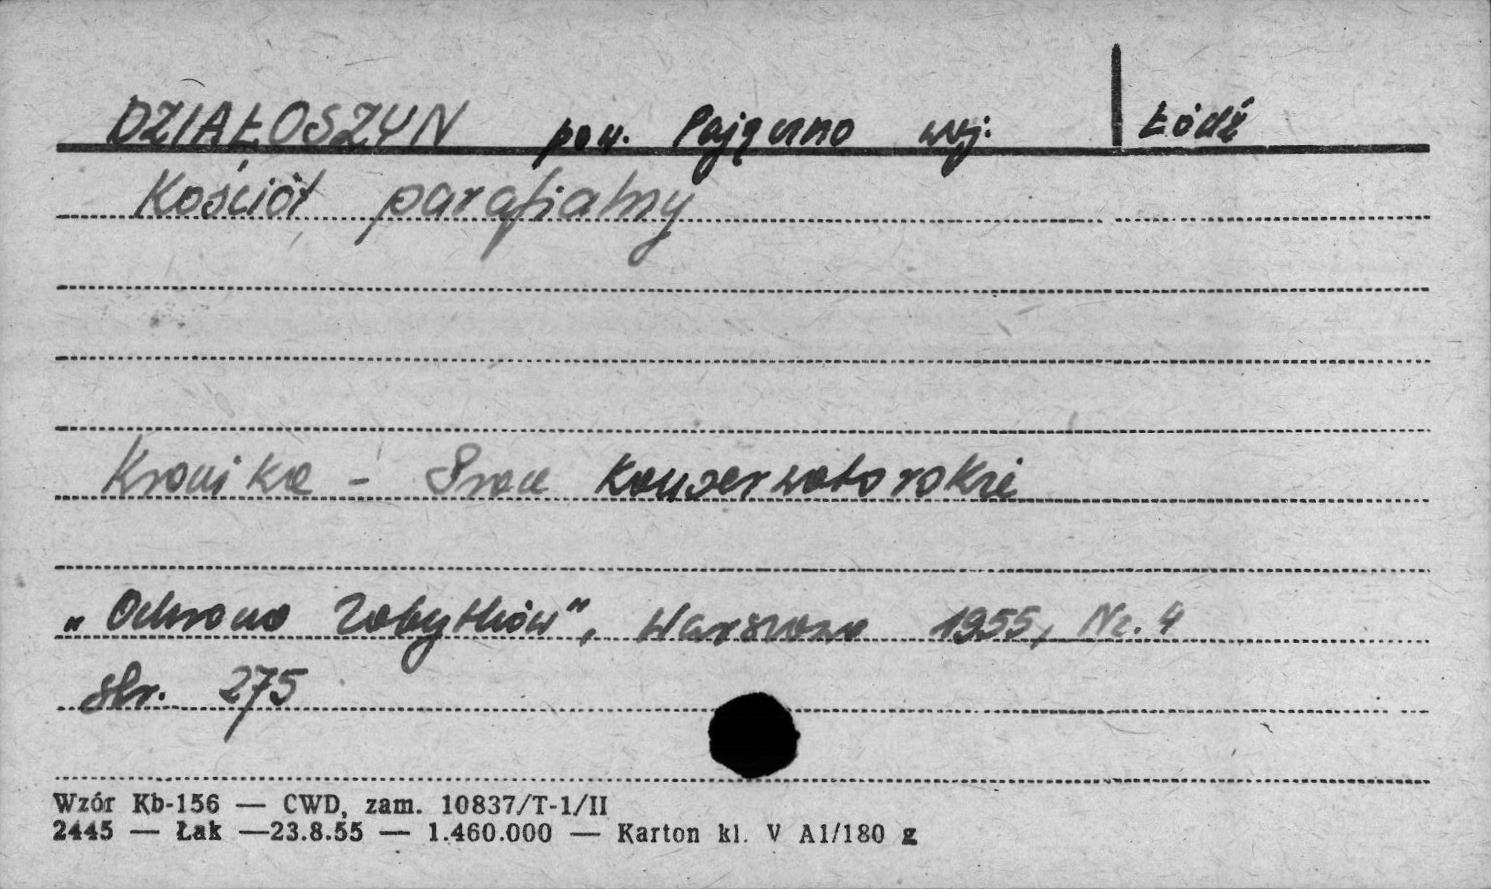 DZIAŁOSZYN pow. Pajęczno woj. Łódź
Kościół parafialny
Kronika - Prace Konserwatorskie
„Ochrona Zabytków", Warszawa 1955, Nr. 4
str. 275
Wzór Kb-156 — CWD, zam. 10837/T-1/II
2445 — Łak —23.8.55 — 1.460.000 — Karton kl. V A1/180 g